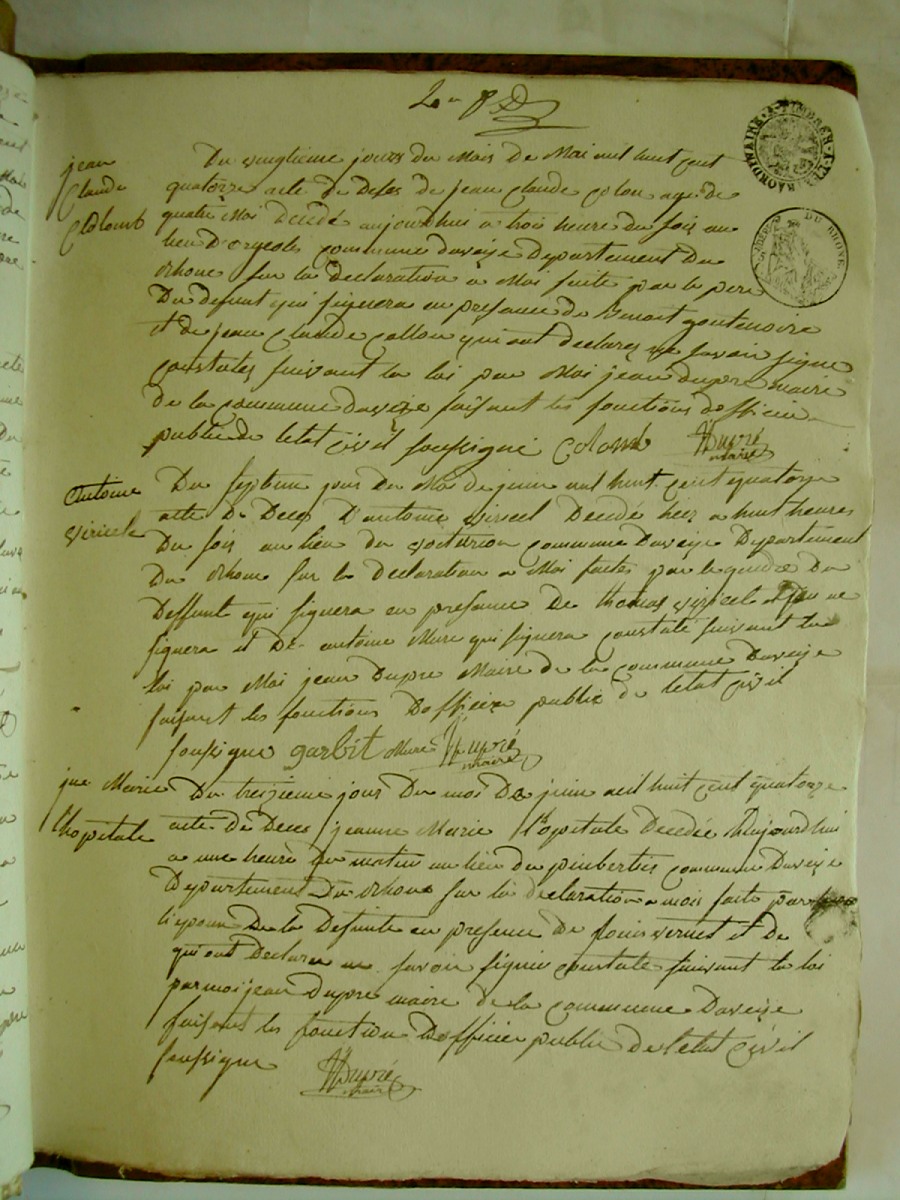 jean
Claude
Colomb
Du vingtieme jours du Mois de Mai mil huit cent
quatorze acte de Deses de jean Claude Colon age de
quatre Moi Decedé aujourdhui a trois heure du soir au
lieu Dorgeole commune daveize Departement Du
Rhone sur la Declaration a Moi faite par le pere
Du defunt qui signera en presance de Benoit goutenoire
et de jean Claude Collon qui ont declares ne savoir signe
Constates suivant la loi par Moi jean dupre maire
De la Commune Daveize faisant les fonctions dofficier
public de letat Civil soussigne Colomb Dupré
maire
Antoine
Viricele
Du septieme jour Du Moi de juin mil huit cent quatorze
acte De Deces D'antoine Viricel Decede hier a huit heures
Du soir au lieu du commune Daveize Departement
Du Rhone sur la Declaration a Moi faites par le gendre Du
Deffunt qui signera en presance De thomas Viricel ne
signera et De antoine Mure qui signera Constaté suivant la
loi par Moi jean Dupre Maire De la Commune Daveize
faisant les fonctions Dofficier public De letat Civil
soussigne garbit Mure Dupré
maire
jne Marie
lhopitale
Du treizieme jour Du moi De juin mil huit cent quatorze
acte De Deces jeanne Marie lopitale Decedée Aujourdhui
a une heure du matin au lieu du pinbertis commune Daveize
Departement Du Rhone sur la declaration a mois faite par
lepoux De la Defunte en presence De Vernet et De
qui ont Declarer ne savoir signer Constate suivant la loi
par moi jean Dupre maire de la commune Daveize
faisant les fonction Dofficier public De letat Civil
soussigne Dupré
maire
DU RHONE